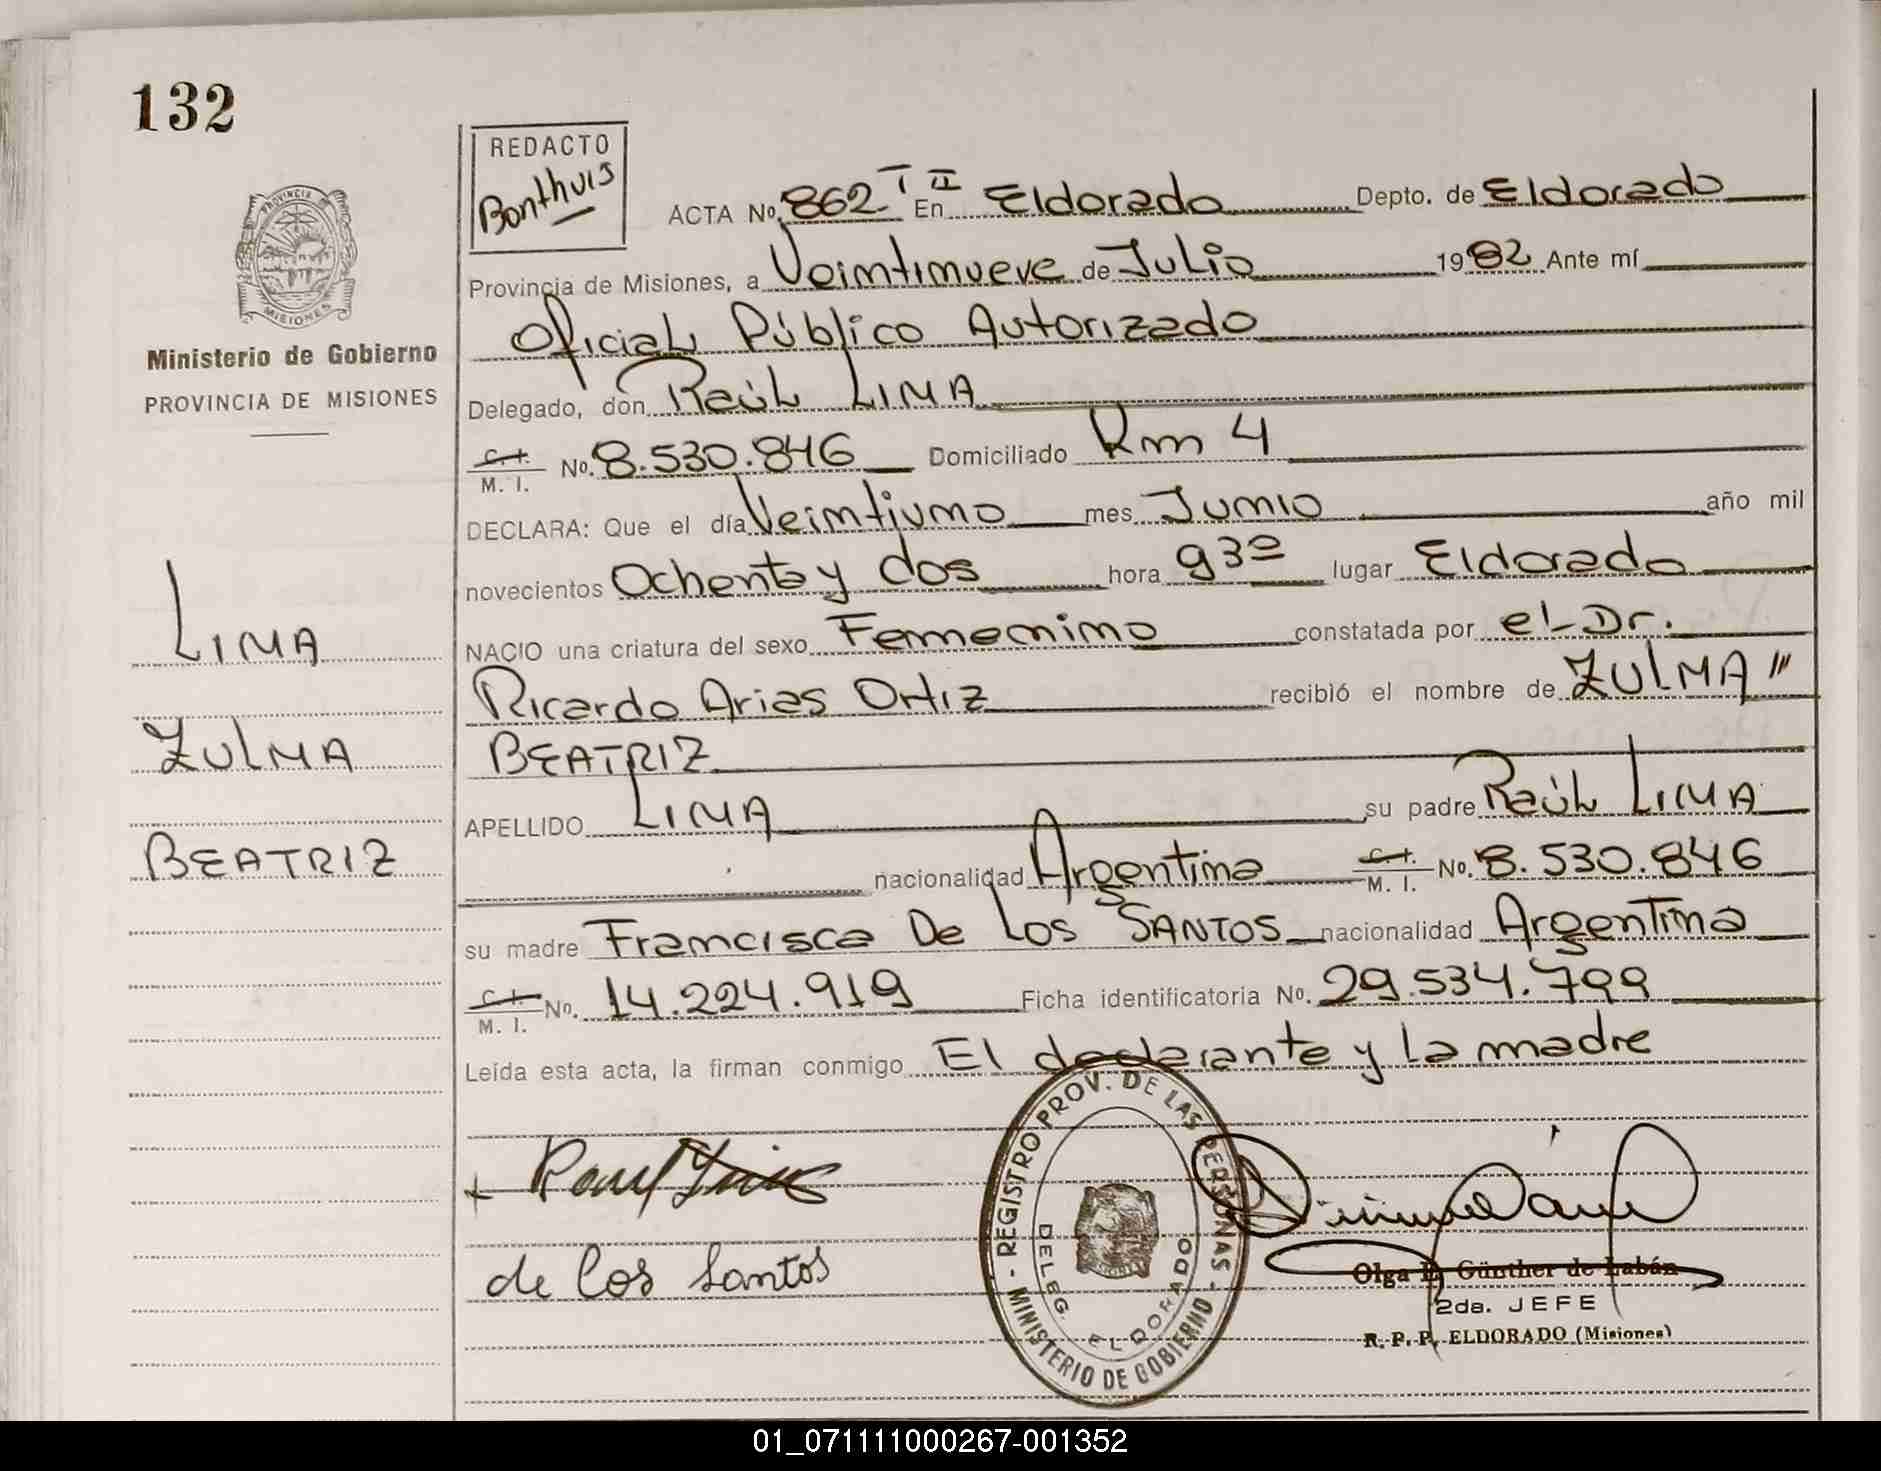 132
REDACTO
Bonthuis
ACTA No. 862 T II En Eldorado Depto. de Eldorado
Provincia de Misiones, a Veintinueve de Julio 1982 Ante mí
Oficial Público Autorizado
Delegado, don Raúl LIMA
C. I. M. I. No. 8.530.846 Domiciliado Km 4
DECLARA: Que el día Veintiuno mes Junio año mil
novecientos Ochenta y dos hora 9 30 lugar Eldorado
NACIO una criatura del sexo Femenino constatada por el Dr.
Ricardo Arias Ortiz recibió el nombre de ZULMA "
BEATRIZ
APELLIDO LIMA su padre Raúl LIMA
nacionalidad Argentina C. I. M. I. No. 8.530.846
su madre Francisca De Los SANTOS nacionalidad Argentina
C. I. M. I. No. 14.224.919 Ficha identificatoria No. 29.534.799
Leída esta acta, la firman conmigo El declarante y la madre
PROVINCIA
MISIONES
Ministerio de Gobierno
PROVINCIA DE MISIONES
LIMA
ZULMA
BEATRIZ
Raul Lima
de los Santos
- REGISTRO PROV. DE LAS PERSONAS -
MINISTERIO DE GOBIERNO
DELEG. ELDORADO
Olga Günther de Labán
2da. JEFE
R. P. P. ELDORADO (Misiones)
01_071111000267-001352